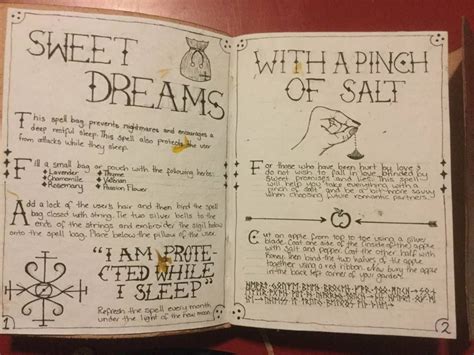 SWEET
DREAMS
This spell bag prevents nightmares and encourages a
deep restful sleep. This spell also protects the user
from attacks while they sleep.
Fill a small bag or pouch with the following herbs:
Lavender Thyme
Chamomile Valerian
Rosemary Passion Flower
Add a lock of the users hair and then bind the spell
bag closed with string. Tie two silver bells to the
ends of the strings and embroider the sigil below
onto the spell bag. Place below the pillow of the user.
"I AM PROTE-
CTED WHILE
I SLEEP"
Refresh the spell every month
under the light of the new moon.
1
WITH A PINCH
OF SALT
For those who have been hurt by love &
do not wish to fall in love blinded by
Sweet promises and Lies. This spell
will help you take everything with a
pinch of salt and be a lot more savvy
when choosing future romantic partners.
Cut an apple from top to toe using a silver
blade. Coat one side of the inside of the apple
with Salt and Pepper. Coat the other half with
honey. Then bind the two halves of the apple
together using a red ribbon. Now bury the apple
in the back left corner of your garden.
2